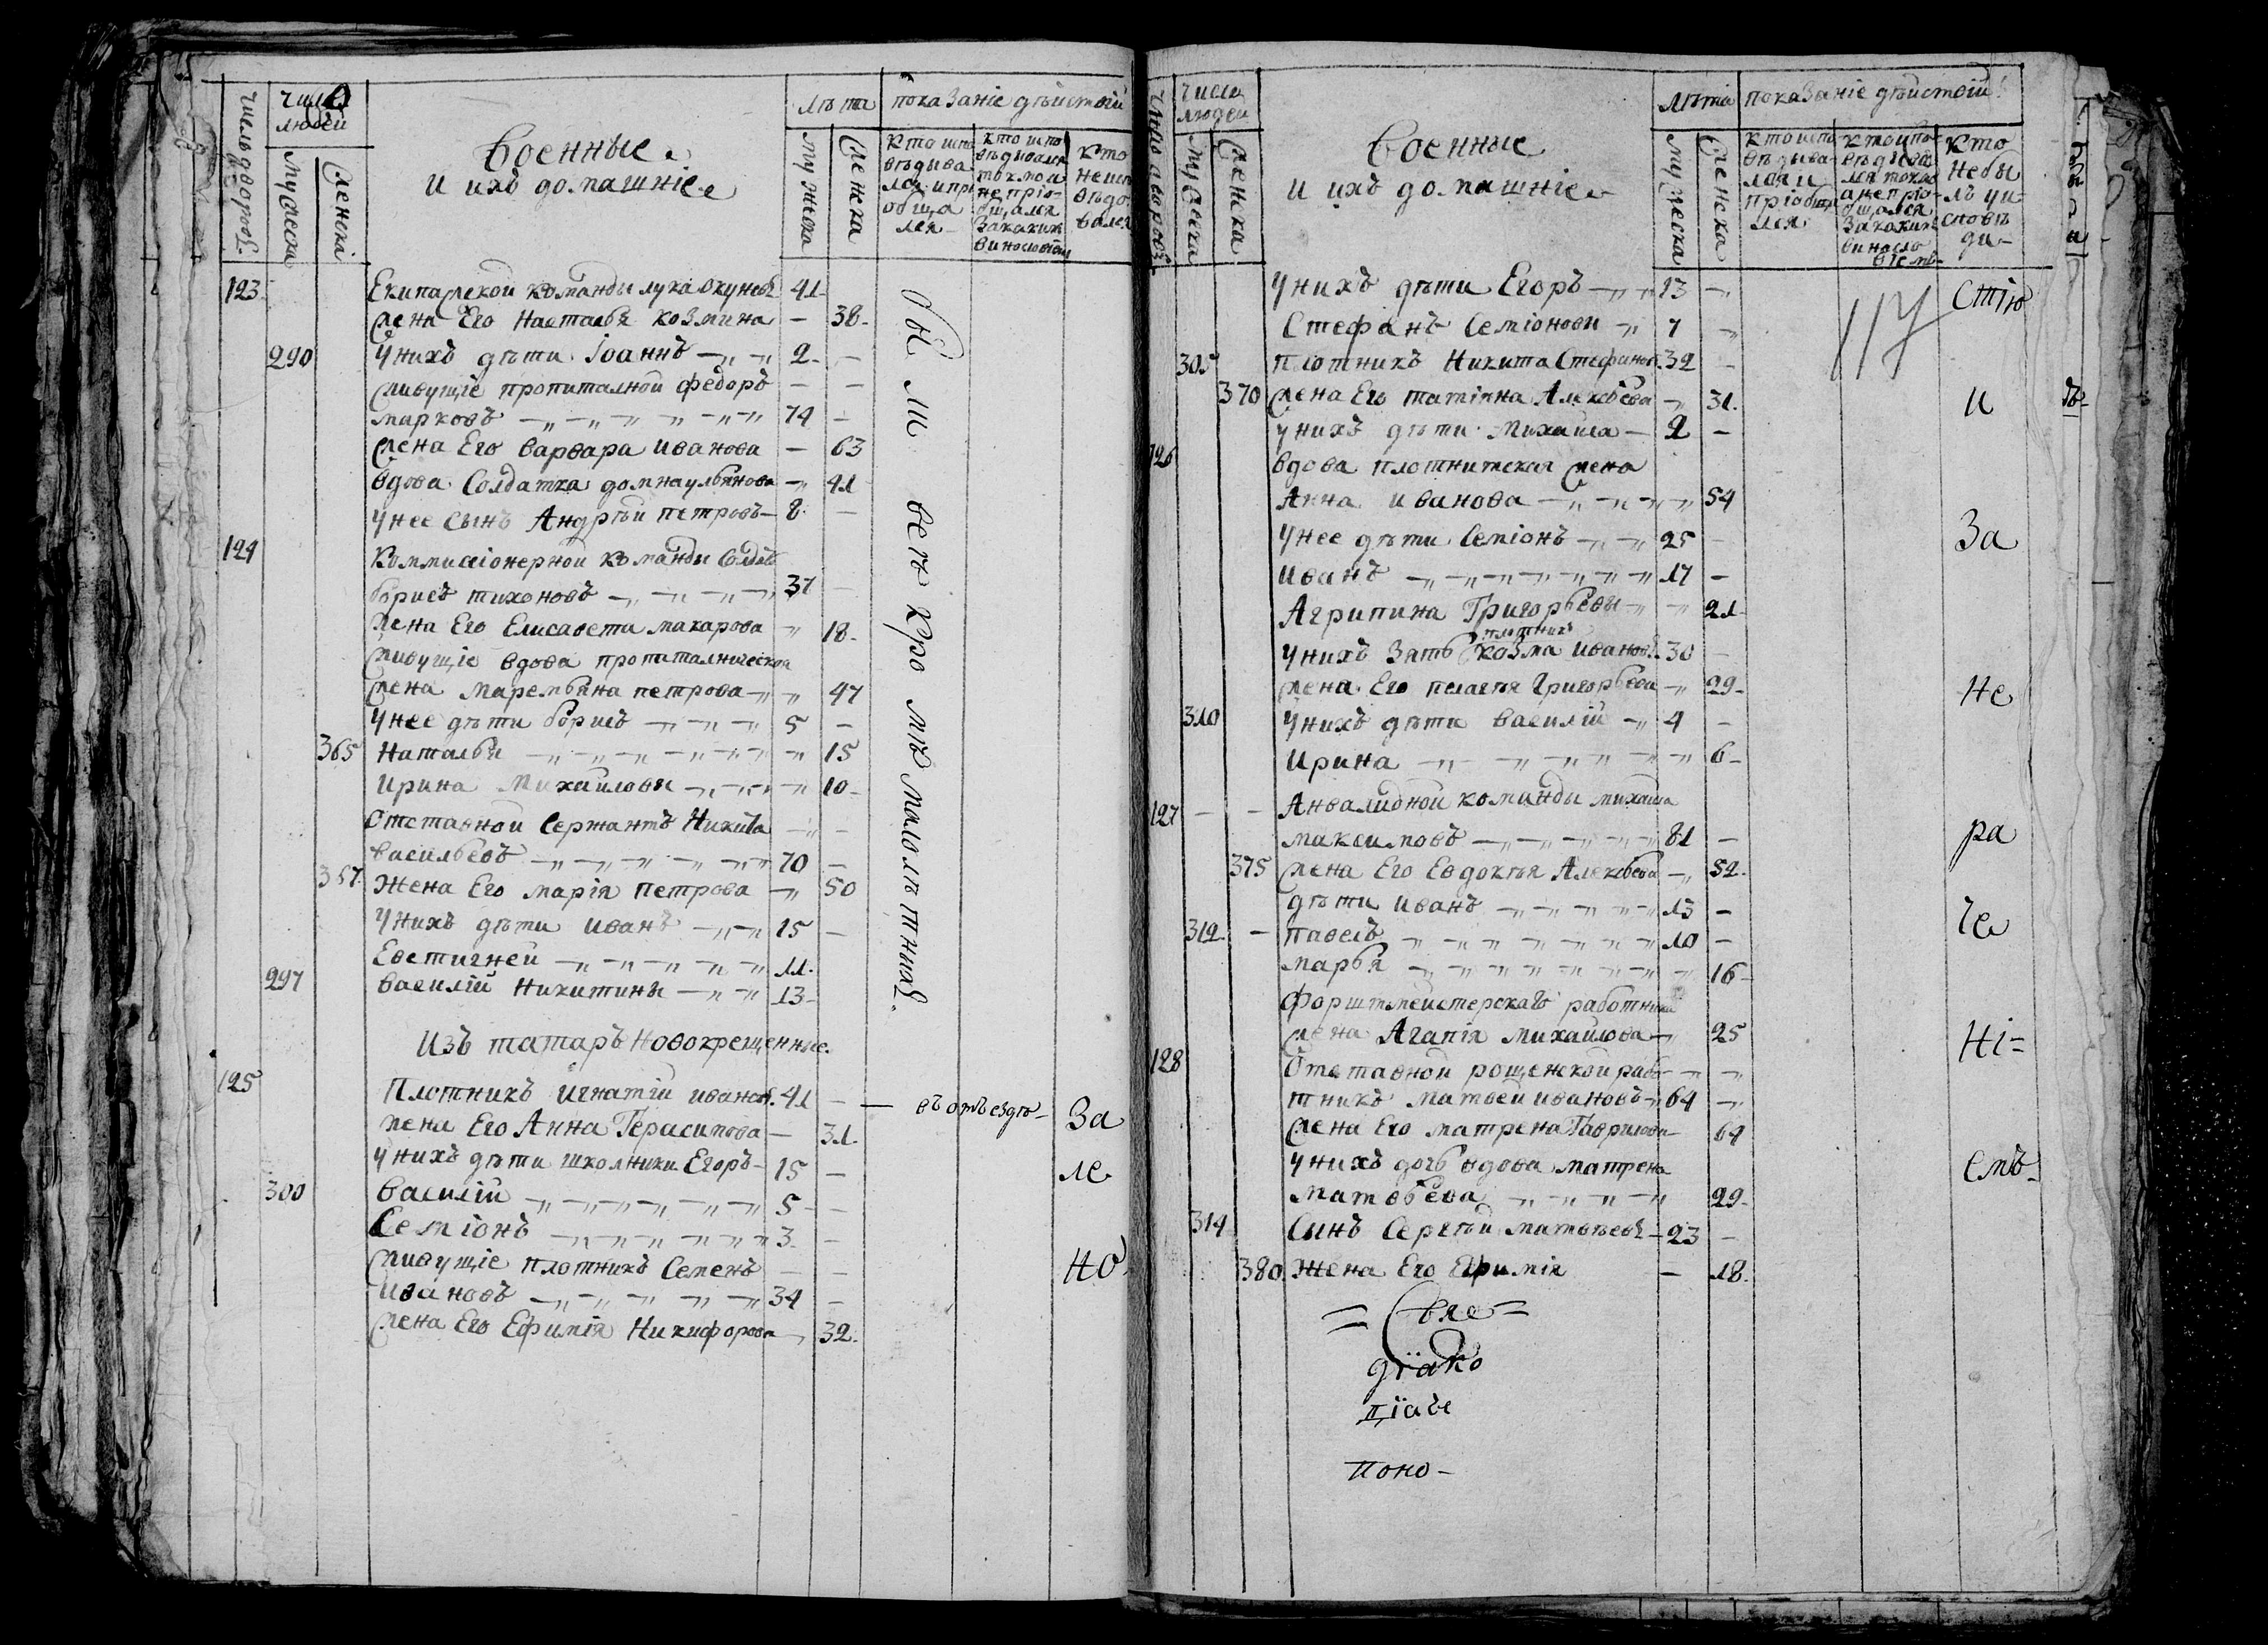 число дворовъ
числа людей
мужеска
женска
Военные
и ихъ домашніе
лѣта
мужеска
женска
показаніе дѣйствій
кто испо
вѣдыва
лся и прі
обща
лся
кто испо
вѣдывался
токмо а
не пріо-
бщался
за какимъ
винословіемъ
кто
не испо
вѣдо
вался
123 Екипажской команды лука окуневъ 41
жена Его Настасья козмина — 38
290 у нихъ дѣти Іоаннъ 2
живущіе пропиталной федоръ
марковъ 74
жена Его варвара иванова — 63
вдова Солдатка домна ульянова 41
у нее Сынъ Андрѣй петровъ 8
124 Коммиссіонерной команды Солдатъ
борисъ тихоновъ 37
жена Его Елисавета макарова 18
живущіе вдова пропиталническая
жена Маремьяна петрова 47
у нее дѣти борисъ 5
365 Наталья 15
Ирина Михайловы 10
Отставной Сержантъ Никита
васильевъ 70
367 Жена Его марія петрова 50
у нихъ дѣти иванъ 15
Евстигней 11
297 василій Никитины 13
Были всѣ кромѣ малолѣтныхъ
Изъ татаръ Новокрещенные
125 Плотникъ игнатій ивановъ 41 — въ отъѣздѣ
жена Его Анна Герасимова — 31
у нихъ дѣти школники Егоръ 15
300 василій 5
Семіонъ 3
живущіе плотникъ Семенъ
Ивановъ 34
жена Его Ефимія Никифорова 32
За
ле
но
число дворовъ
числа людей
мужеска
женска
Военные
и ихъ домашніе
лѣта
мужеска
женска
показаніе дѣйствій
кто испо
вѣдыва-
лся и
пріобща
лся
кто испо-
вѣдыва
лся токмо
а не пріо-
бщался
за какимъ
виносло
віемъ
кто
небы
лъ у и-
сповѣ
ди
117
у нихъ дѣти Егоръ 13
Стефанъ Семіоновы 7
305 плотникъ Никита Стефановъ 32
370 жена Его татіяна Алексѣева 31
у нихъ дѣти Михайла 2
126 вдова плотнитская жена
Анна иванова 54
у нее дѣти Семіонъ 25
иванъ 17
Агрипина Григорьевы 21
плотникъ
у нихъ зять козма ивановъ 30
жена Его пелагѣя Григорьева 29
310 у нихъ дѣти василій 4
Ирина 6
127 Анвалидной команды михайла
максимовъ 81
375 жена Его Евдокѣя Алексѣева 52
дѣти иванъ 13
312 павелъ 10
марья 16
форштмейстерскагъ работника
жена Агапія михайлова 25
128 Отставной рощенской рабо
тникъ матвей ивановъ 64
жена Его матрена Гаврилова 64
у нихъ дочь вдова матрена
матвѣева 29
314 Сынъ Сергѣй матвѣевъ 23
380 Жена Его Ефимія — 18
Стію
и
За
не
ра
че
ні=
емъ
= Свя =
діако
пїаъе
поно-